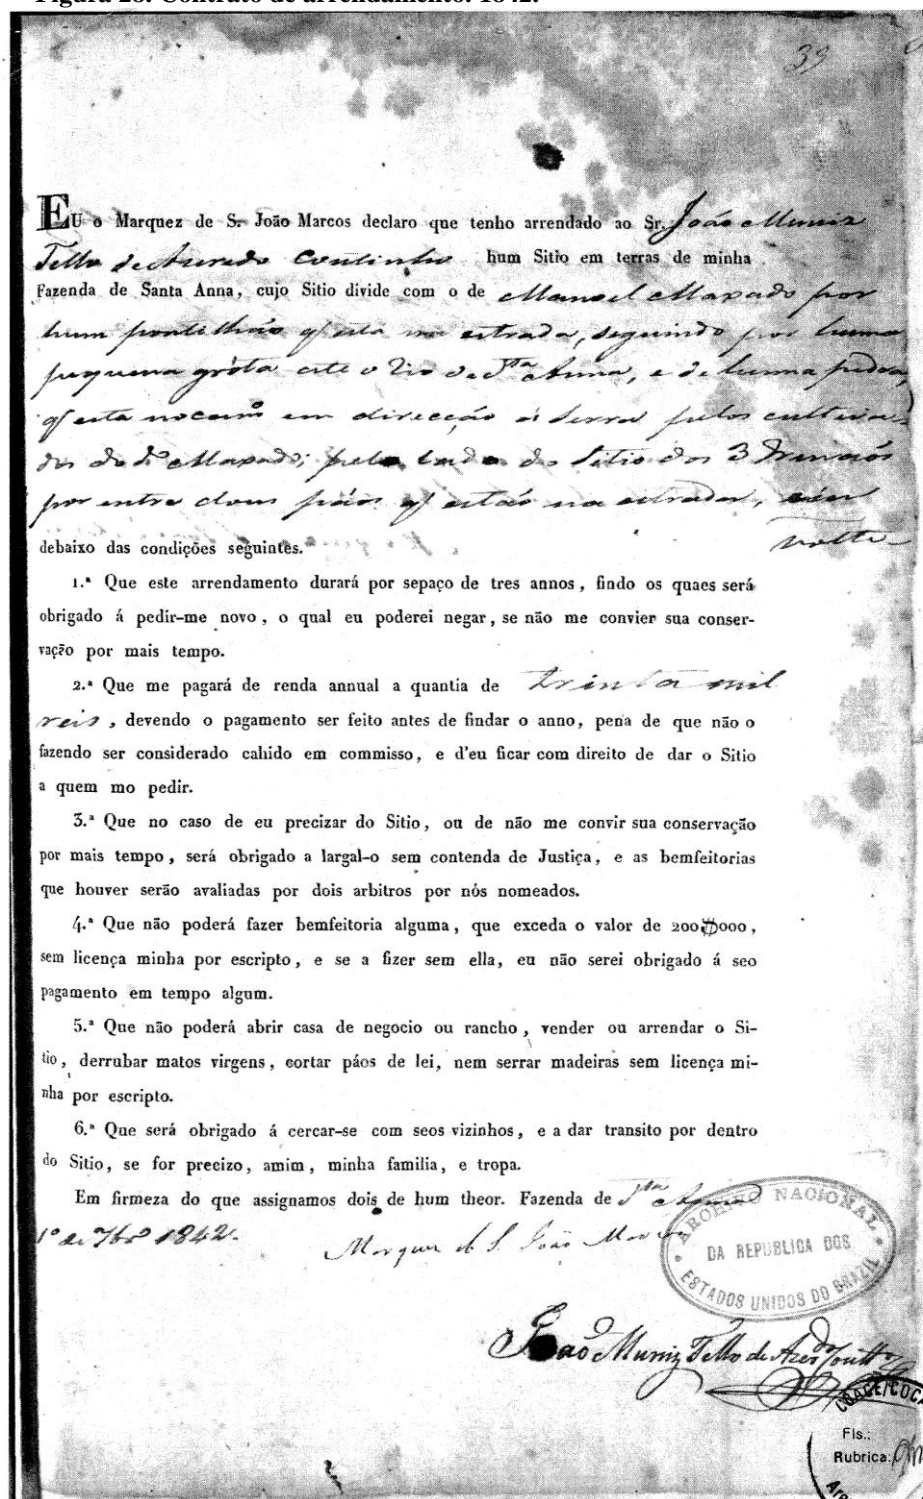 Figura 28. Contrato de arrendamento. 1842.
39
EU o Marquez de S. João Marcos declaro que tenho arrendado ao Sr. João Muniz
Tello de Azeredo Coutinho hum Sitio em terras de minha
Fazenda de Santa Anna, cujo Sitio divide com o de Manoel Maxado por
hum pontilhão q está na estrada, seguindo por huma
pequena gróta até o Rio de Sta Anna, e de huma pedra,
q está no camo em direcção á Serra pelos cultiva-
dos do do Maxado; pelo lado do Sitio dos 3 Irmaós
por entre dous páos q estão na estrada,
volte
debaixo das condições seguintes.
1.ª Que este arrendamento durará por sepaço de tres annos, findo os quaes será
obrigado á pedir-me novo, o qual eu poderei negar, se não me convier sua conser-
vação por mais tempo.
2.ª Que me pagará de renda annual a quantia de trinta mil
reis, devendo o pagamento ser feito antes de findar o anno, pena de que não o
fazendo ser considerado cahido em commisso, e d'eu ficar com direito de dar o Sitio
a quem mo pedir.
3.ª Que no caso de eu precizar do Sitio, ou de não me convir sua conservação
por mais tempo, será obrigado a largal-o sem contenda de Justiça, e as bemfeitorias
que houver serão avaliadas por dois arbitros por nós nomeados.
4.ª Que não poderá fazer bemfeitoria alguma, que exceda o valor de 200$000,
sem licença minha por escripto, e se a fizer sem ella, eu não serei obrigado á seo
pagamento em tempo algum.
5.ª Que não poderá abrir casa de negocio ou rancho, vender ou arrendar o Si-
tio, derrubar matos virgens, cortar páos de lei, nem serrar madeiras sem licença mi-
nha por escripto.
6.ª Que será obrigado á cercar-se com seos vizinhos, e a dar transito por dentro
do Sitio, se for precizo, amim, minha familia, e tropa.
Em firmeza do que assignamos dois de hum theor. Fazenda de Sta Anna
1º de 7bro 1842.
Marquez de S. João Marcos
ARCHIVO NACIONAL
DA REPUBLICA DOS
ESTADOS UNIDOS DO BRAZIL
João Muniz Tello de Azedo Coutto
Fls.:
Rubrica: